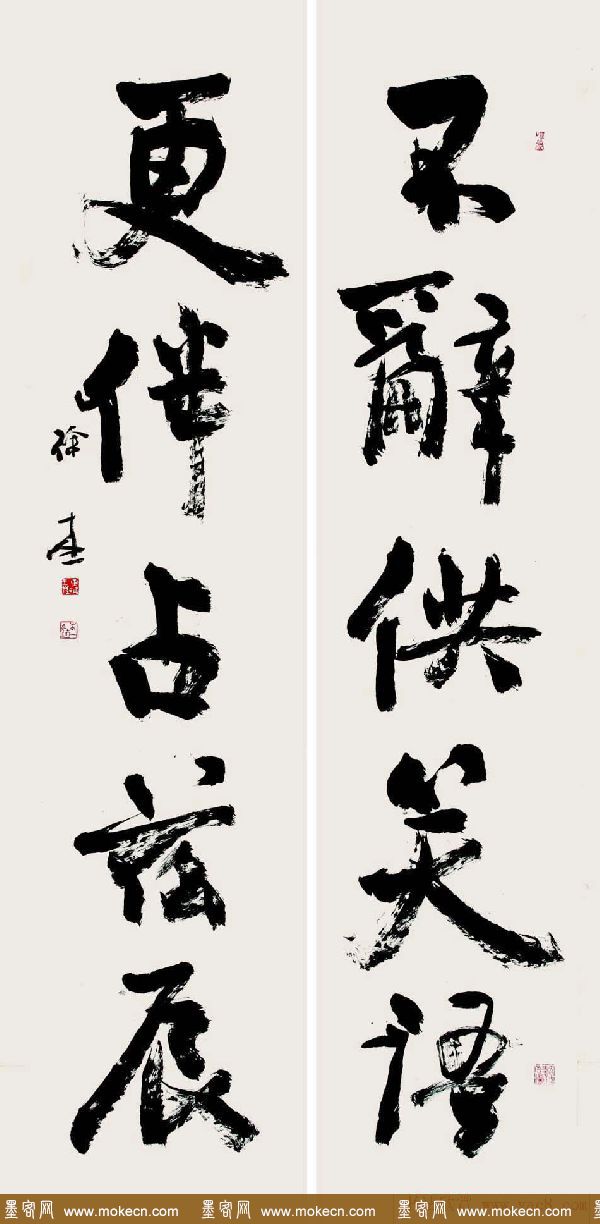 不辭供笑語
更伴占茲辰
徐
墨客网 www.mokecn.com 墨客网 www.mokecn.com 墨客网 www.mokecn.com